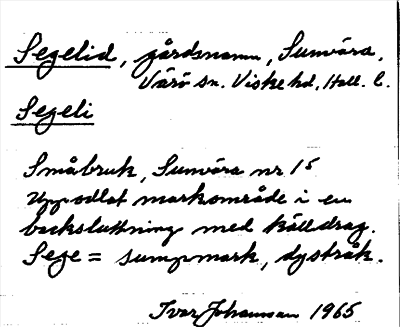 Segelid, gårdsnamn, Sunvära,
Värö sn. Viske hd, Hall. l.
Segeli
Småbruk, Sunvära nr 15
Uppodlat markområde i en
backsluttning med källdrag.
Sege = sumpmark, dystråk.
Ivar Johansson 1965